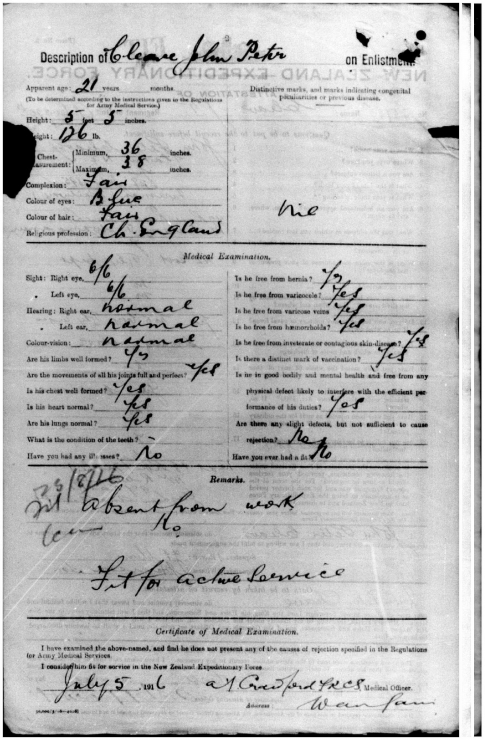 Description of Cleave John Peter on Enlistment.
Apparent age: 21 years months
(To be determined according to the instructions given in the Regulations
for Army Medical Service.)
Distinctive marks, and marks indicating congenital
peculiarities or previous disease.
Height: 5 feet 5 inches.
126 lb.
Chest- Minimum, 36 inches.
Maximum, 38 inches.
Complexion: Fair
Colour of eyes: Blue
Colour of hair: Fair
Nil
Religious profession: Ch. England
Medical Examination.
Sight: Right eye, 6/6
Left eye, 6/6
Hearing: Right ear, normal
Left ear, normal
Colour-vision: normal
Are his limbs well formed? Yes
Are the movements of all his joints full and perfect? Yes
Is his chest well formed? Yes
Is his heart normal? Yes
Are his lungs normal? Yes
What is the condition of the teeth?
Have you had any illnesses? No
Is he free from hernia? Yes
Is he free from varicocele? Yes
Is he free from varicose veins? Yes
Is he free from hæmorrhoids? Yes
Is he free from inveterate or contagious skin-disease? Yes
Is there a distinct mark of vaccination? Yes
Is he in good bodily and mental health and free from any
physical defect likely to interfere with the efficient per-
formance of his duties? Yes
Are there any slight defects, but not sufficient to cause
rejection? No
Have you ever had a fit? No
Remarks.
25/8/16
Absent from work
No
Fit for active Service
Certificate of Medical Examination.
I have examined the above-named, and find he does not present any of the causes of rejection specified in the Regulations
for Army Medical Services.
I consider him fit for service in the New Zealand Expeditionary Force.
July 5 1916 Crawford FRCS Medical Officer.
Address: